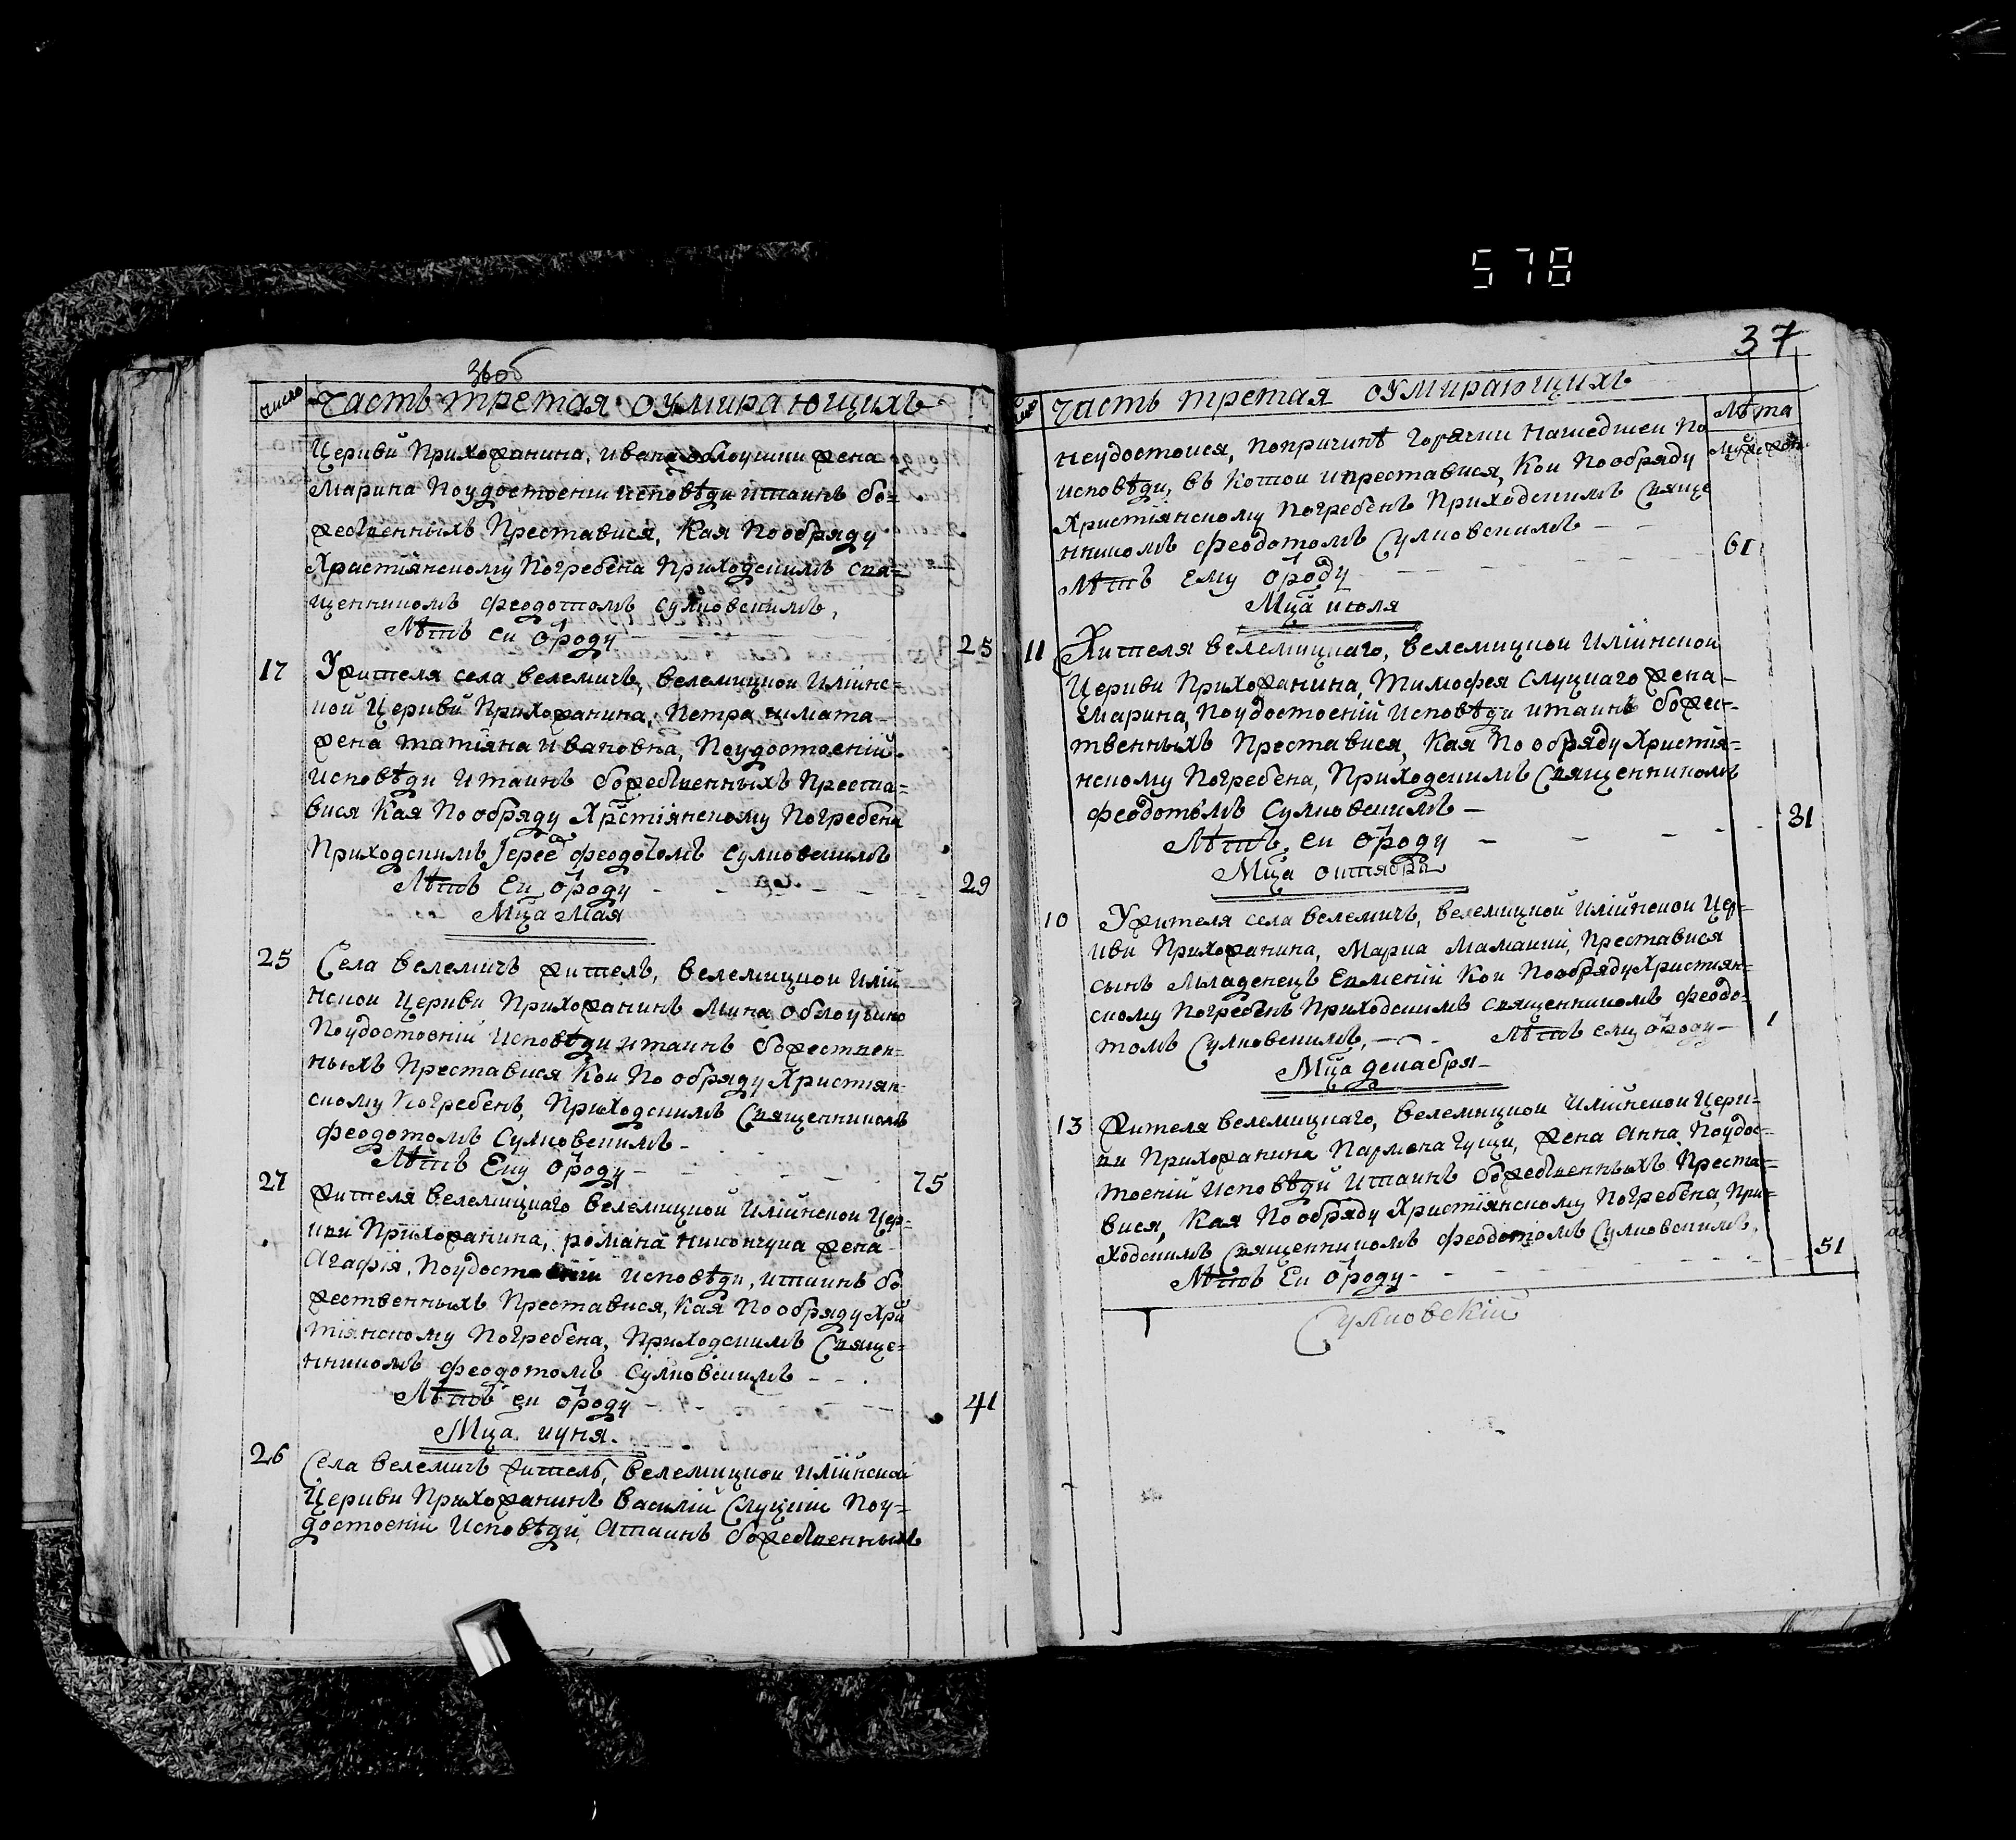 578
36об
число Часть третая оумирающихъ
Церкви Прихожанина, Ивана Облоушки жена
Марина Поудостоении исповѣди итаинъ бо=
жественныхъ Преставися, Кая Пообряду
Христіянскому Погребена Приходскимъ Свя=
щенникомъ Феодотомъ Сулковскимъ,
Лѣтъ еи ѿроду 25
17 Жителя села велемичь, велемицкои Иліинс=
кой Церквй Прихожанина, Петра
жена татіяна ивановна, Поудостоеній
исповѣди итаинъ божественныхъ Преста=
вися Кая Пообряду Хрстіянскому Погребена
Приходскимъ Іерее Феодотомъ Сулковскимъ
Лѣтъ Еи ѿроду 29
Мца Мая
25 Села велемичъ житель, велемицкои Иліи
нскои Церкви Прихожанинъ Мина Облоушко
Поудостоеній исповѣди итаинъ божествен=
ныхъ Преставися Кои Пообряду Христіян=
скому Погребенъ, Приходскимъ Священникомъ
Феодотомъ Сулковскимъ
Лѣтъ Ему ѿроду 75
27 Жителя велемицкаго велемицкой Иліинскои Цер=
кви Прихожанина, романа никончука жена
Агафія, Поудостоеніи исповѣди, итаинъ бо
жественныхъ Преставися, Кая Пообряду Хри
тіянскому Погребена, Приходскимъ Свяще=
нникомъ Феодотомъ Сулковскимъ
Лѣтъ еи ѿроду 41
Мца июня
26 Села велемичъ житель, велемицкои иліинской
Церкви Прихожанинъ Василіи Слуцкіи Поу=
достоеніи Исповѣди, Атаинъ божественныхъ
37
Часть третая оумирающихъ Лѣта
неудостоися, Попричинѣ Горячки нашедшеи По Муж жен
исповѣди, въ Котои ипреставися, Кои Пообряду
Христіянскому Погребенъ Приходскимъ Свяще
нникомъ Феодотомъ Сулковскимъ
Лѣтъ Ему ѿроду 61
Мца июля
11 Жителя Велемицкаго, Велемицкои Иліинскои
Церкви Прихожанина, Тимофея Слуцкаго жена
Марина, Поудостоеній Исповѣди итаинъ божес=
твенныхъ Преставися, Кая Пообряду Христія=
нскому Погребена, Приходскимъ Священникомъ
Феодотомъ Сулковскимъ
Лѣтъ, еи ѿроду 31
Мца октября
10 Жителя села велемичъ, велемицкой иліинскои Цер=
кви Прихожанина, Марка Преставися
сынъ Младенецъ Евменій Кои Пообряду Христіян=
скому Погребенъ Приходскимъ священникомъ Феодо=
томъ Сулковскимъ, Лѣтъ ему ѿроду 1
Мца декабря
13 Жителя велемицкаго, велемицкои Иліинскои Церк=
ви Прихожанина Пармена Гущи, жена Анна Поудос=
тоеній исповѣди итаинъ божественныхъ Преста=
вися, Кая Пообряду Христіянскому Погребена, При=
ходскимъ Священникомъ Феодотомъ Сулковскимъ,
Лѣтъ Еи ѿроду 51
Сулковскій